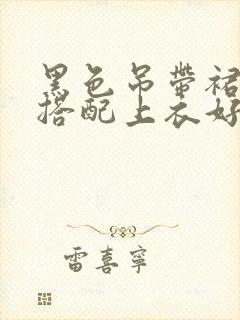 黑色吊帶裙
搭配上衣好
雷喜寧